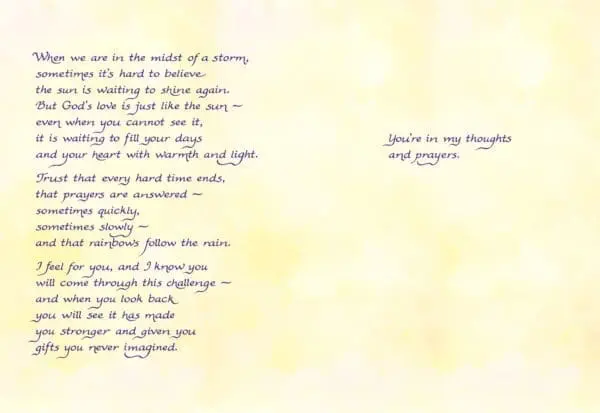 When we are in the midst of a storm,
sometimes it's hard to believe
the sun is waiting to shine again.
But God's love is just like the sun ~
even when you cannot see it,
it is waiting to fill your days
and your heart with warmth and light.
Trust that every hard time ends,
that prayers are answered ~
sometimes quickly,
sometimes slowly ~
and that rainbows follow the rain.
I feel for you, and I know you
will come through this challenge ~
and when you look back
you will see it has made
you stronger and given you
gifts you never imagined.
You're in my thoughts
and prayers.